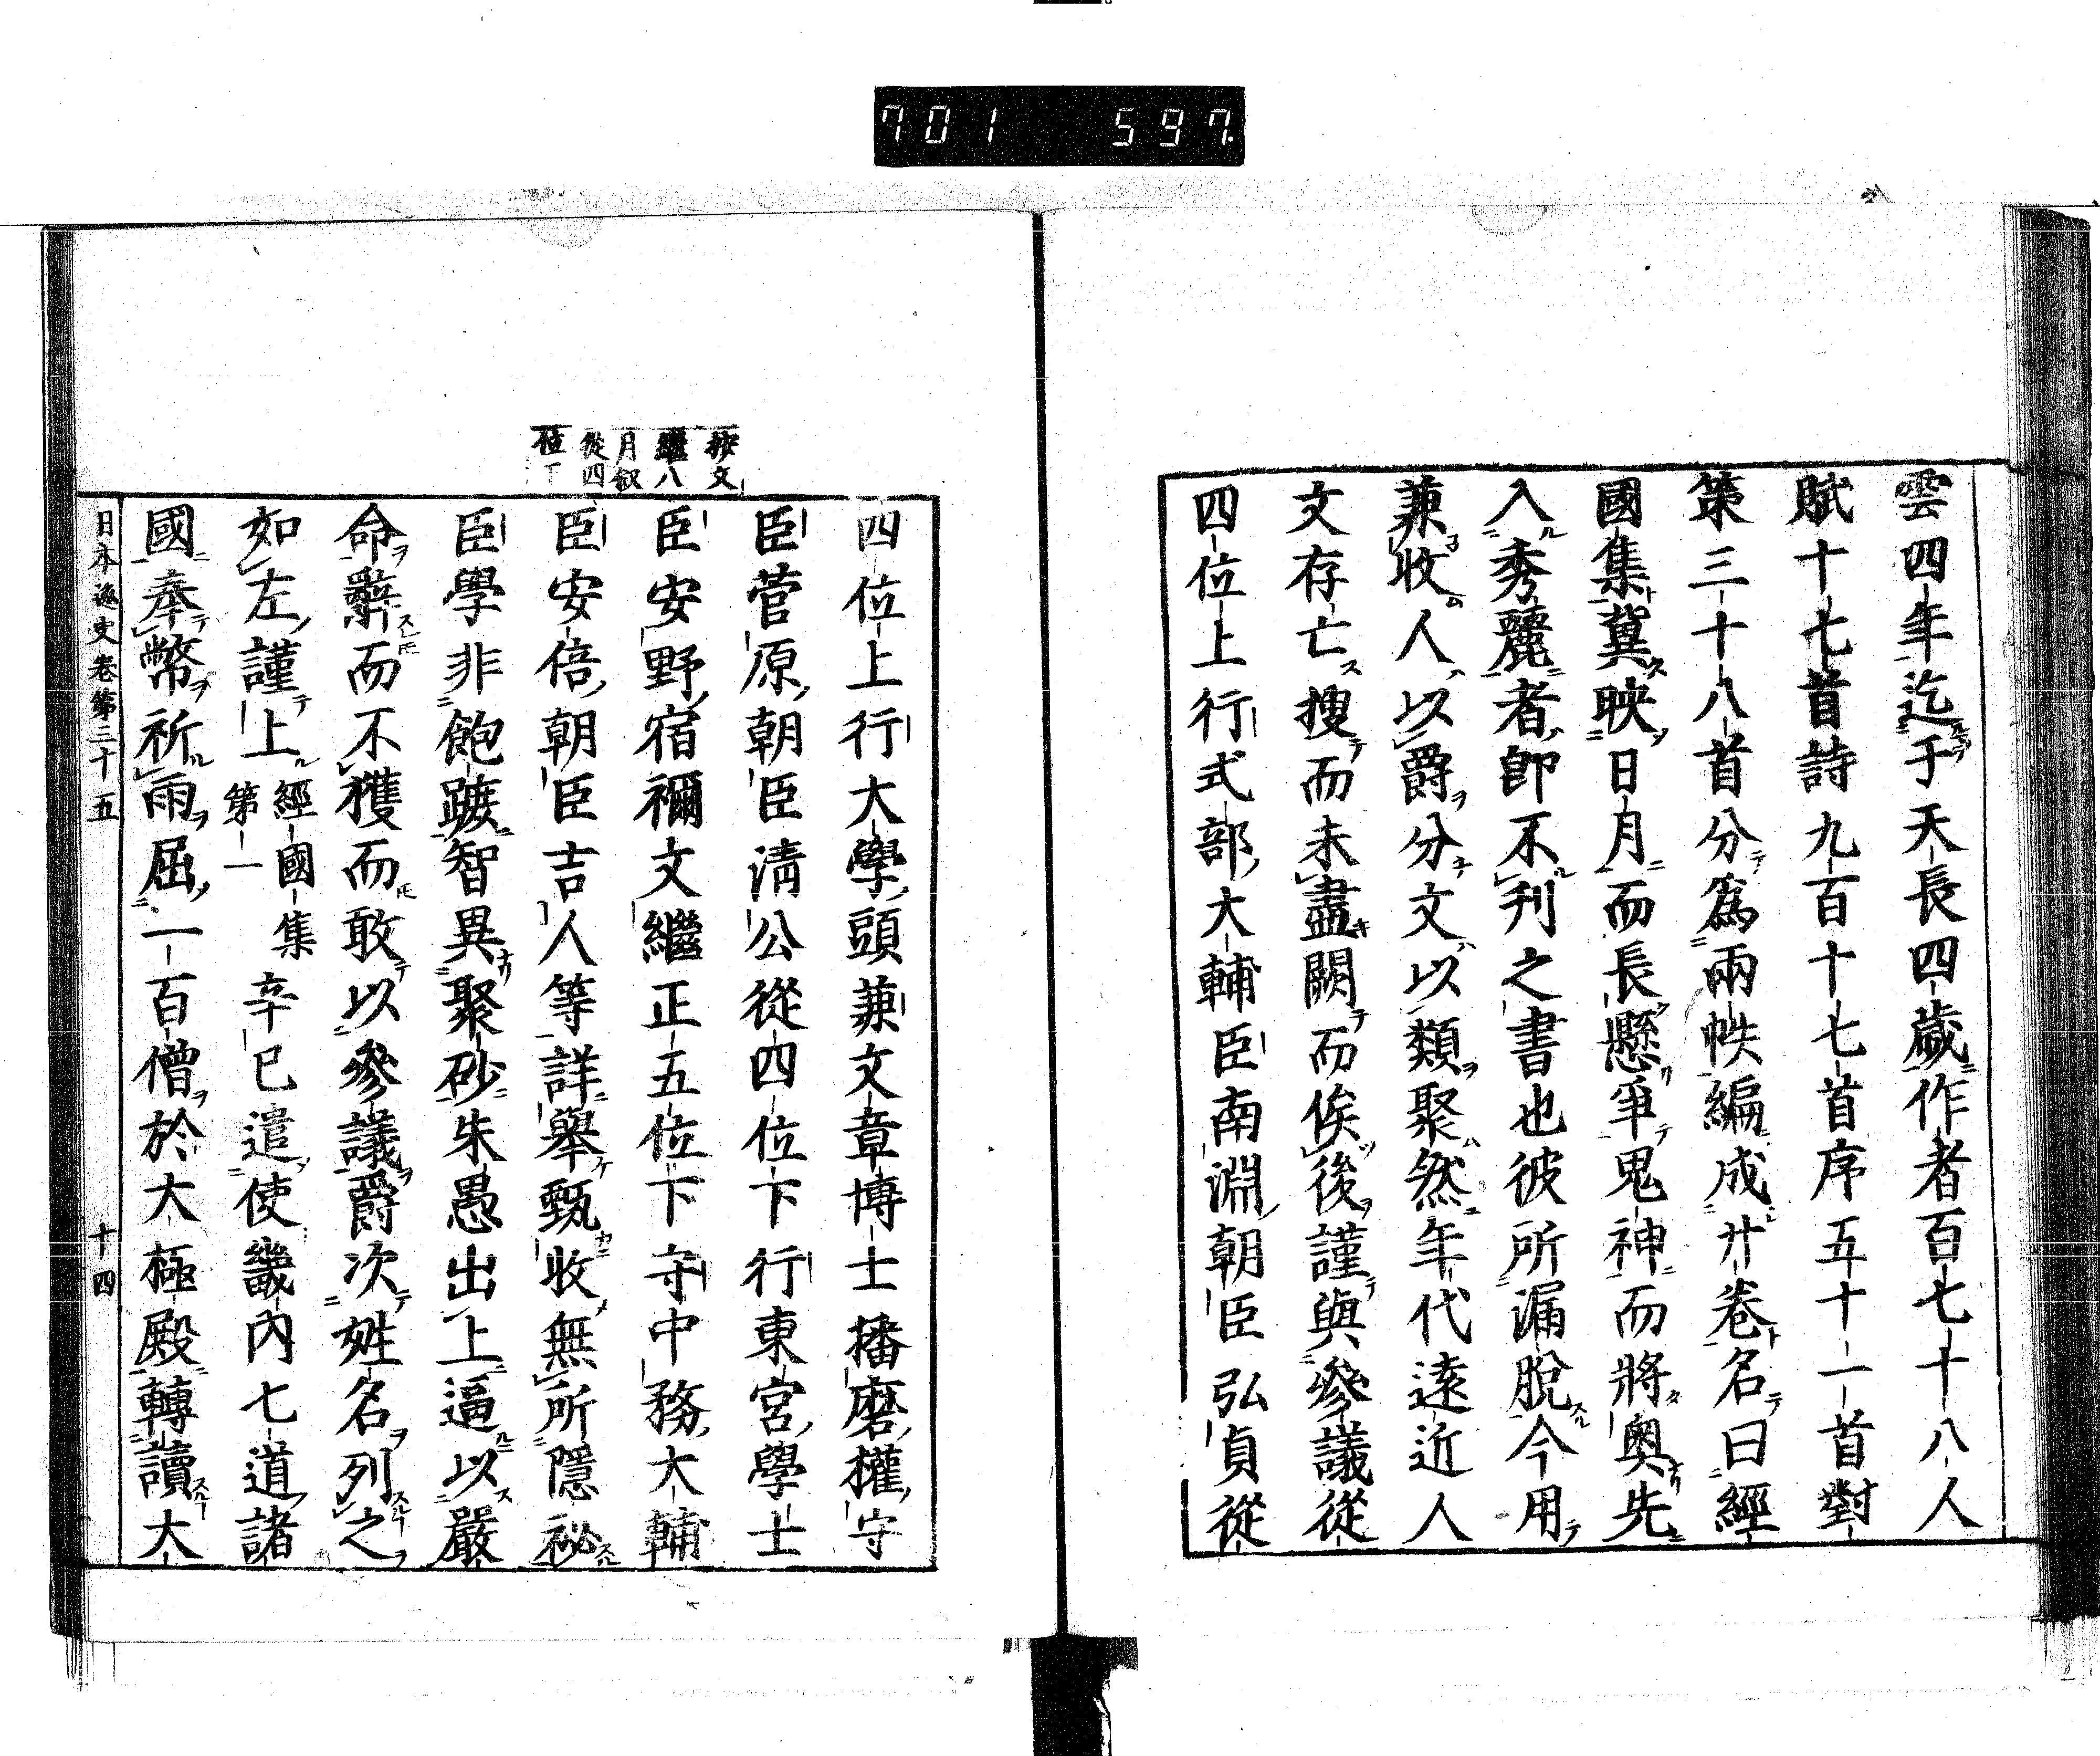 701 597
雲四年迄于天長四歲作者百七十八人
賦十七首詩九百十七首序五十一首對
策三十八首分爲兩帙編成廿卷名曰經
國集冀映日月而長懸爭鬼神而將奧先
入秀麗者卽不刊之書也彼所漏脫今用
兼收人以爵分文以類聚然年代遠近人
文存亡搜而未盡闕而俟後謹與參議從
四位上行式部大輔臣南淵朝臣弘貞從
四位上行大學頭兼文章博士播磨權守
臣菅原朝臣淸公從四位下行東宮學士
臣安野宿禰文繼正五位下守中務大輔
臣安倍朝臣吉人等詳舉甄收無所隱祕
臣學非飽蹠智異聚砂朱愚出上逼以嚴
命辭而不獲而敢以參議爵次姓名列之
如左謹上經國集第一辛巳遣使畿內七道諸
國奉幣祈雨屈一百僧於大極殿轉讀大
按文
繼八
月敘
從四
位下
日本逸史卷第三十五 十四